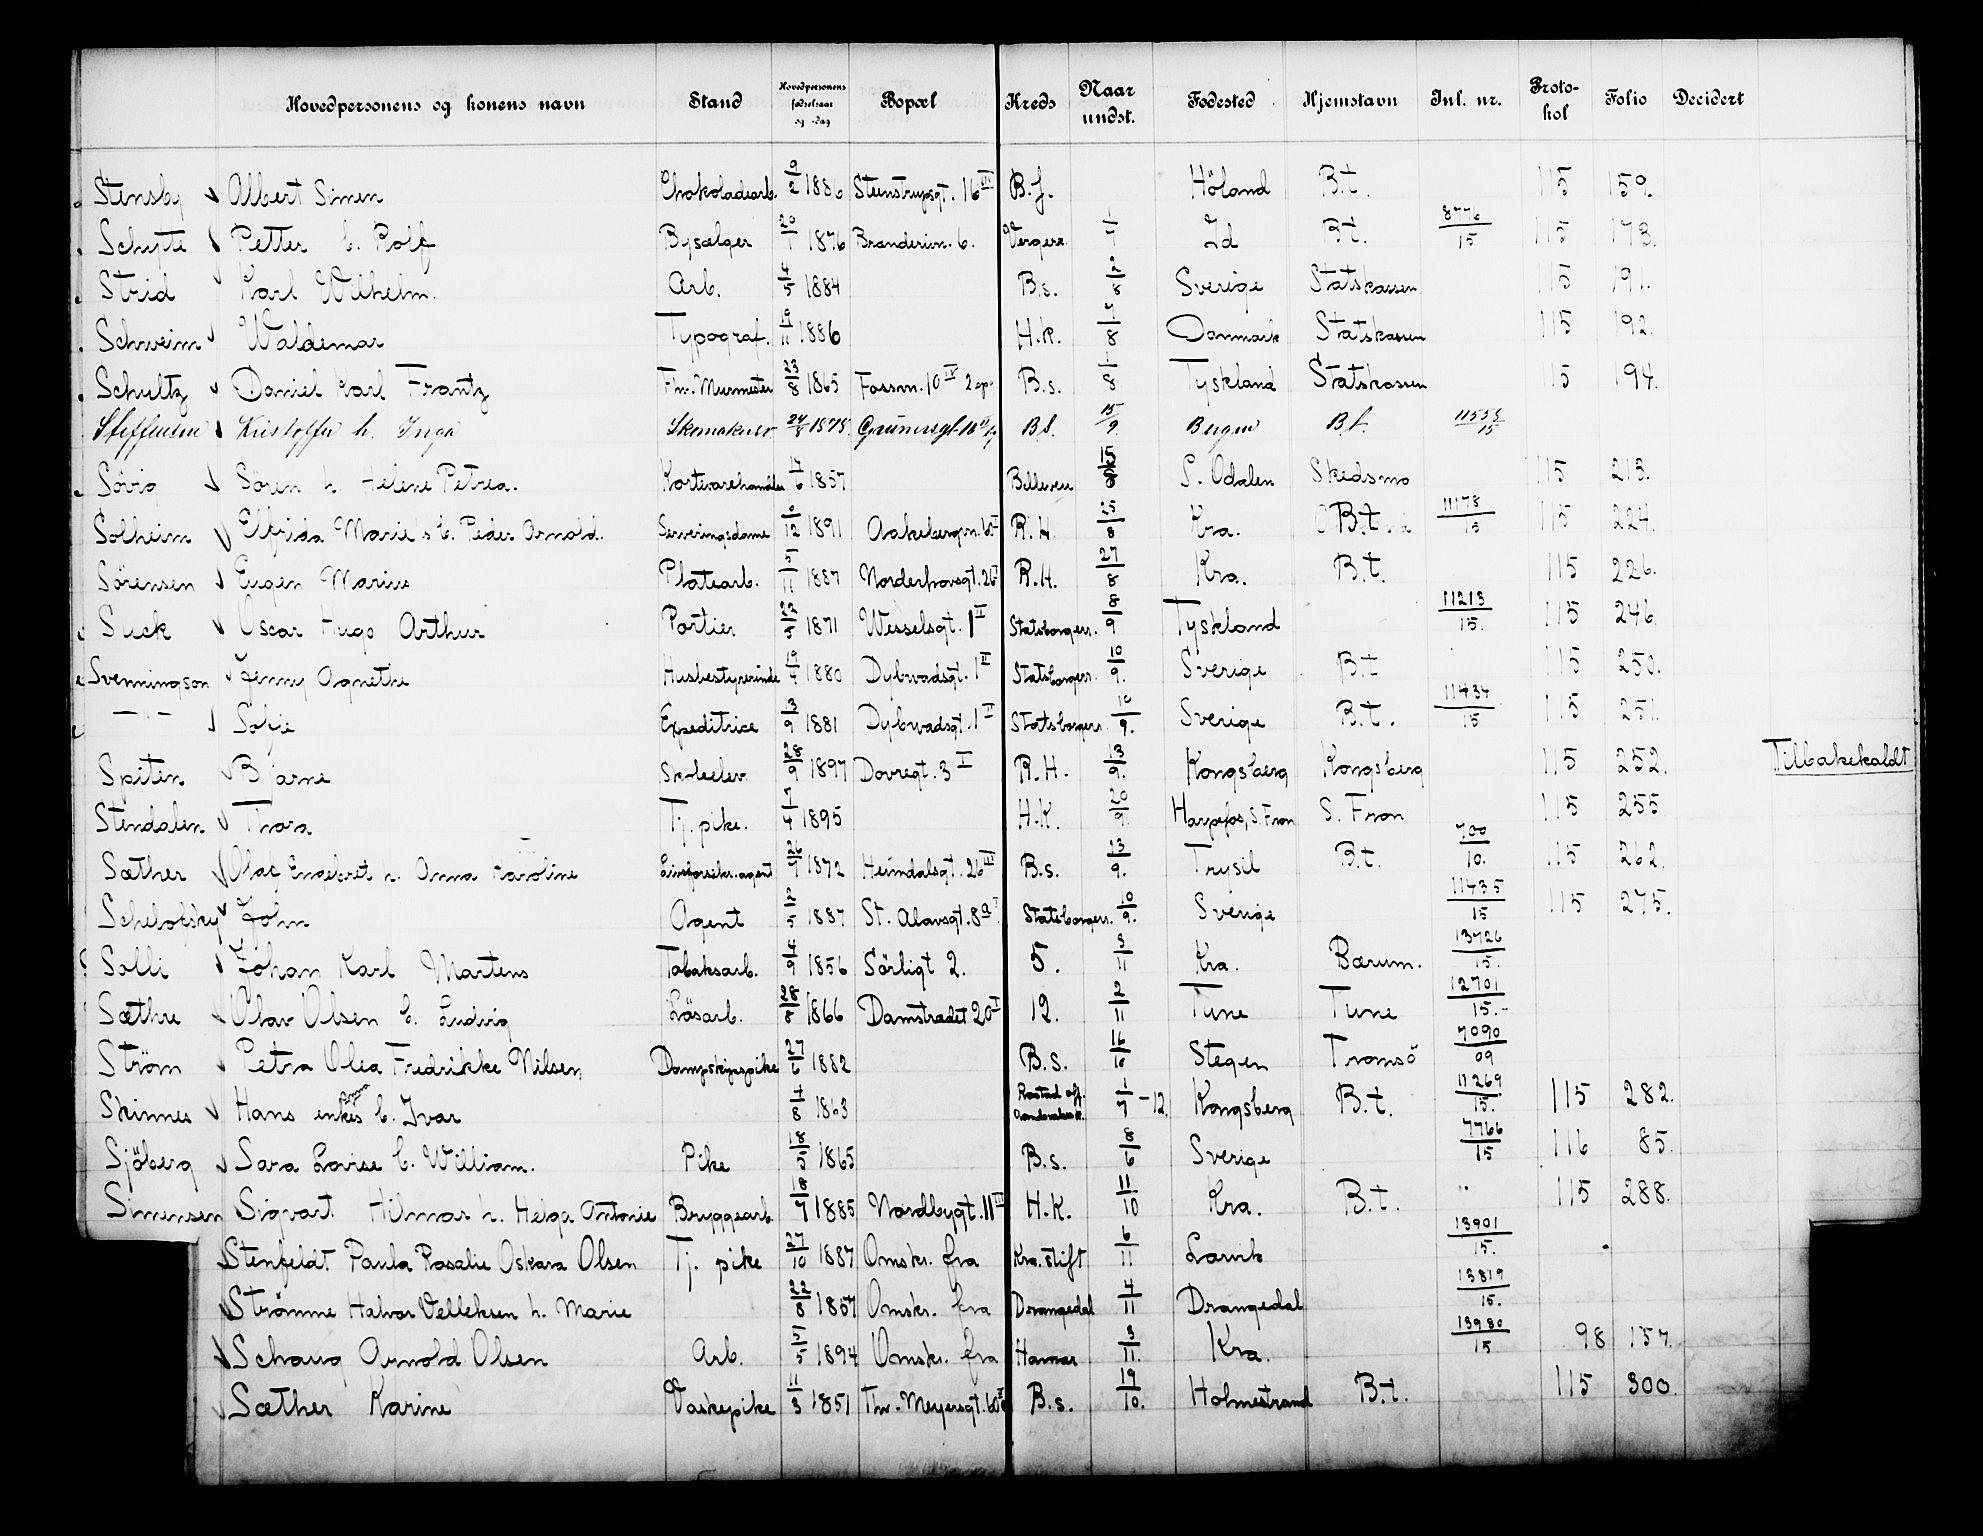 Hovedpersonens og konens navn Stand Hovedpersonens fødselsaar og -dag Bopæl Kreds Naar undst. Fødested Hjemstavn Inl. nr. Proto-kol Folio Decidert
Stensby Albert Simen Chokoladearb. 9/2 1886 Steenstrupsgt. 16 III B.f. Höland B.t. 115 159.
Schytte Petter b. Rolf Bysælger 20/1 1876 Branderivn. 6. Vergerr. 1/7 Id B.t. 8776/15 115 173.
Strid Karl Wilhelm. Arb. 4/5 1884 B.s. 9/8 Sverige Statskassen 115 191.
Schweim Waldemar Typograf. 19/11 1886 H.K. 7/8 Danmark Statskassen 115 192.
Schultz Daniel Karl Frantz Fhv. Murmester 23/8 1865 Fossvn. 10 IV 2 opg. B.s. 1/8 Tyskland Statskassen 115 194.
Steffensen Kristoffer h. Inga Skomakersv. 24/8 1878. Grünersgt. 10 II B.S. 15/9 Bergen B.t. 11533/15
Sövig Sören h. Helene Petrea. Kortevarehandler 14/6 1857 Billeven 15/8 S. Odalen Skedsmo 115 213.
Solheim Elfrida Marie's b. Peder Arnold. Serveringsdame 9/12 1891 Aakebergvn. 60 I R.H. 25/8 Kra. B.t. 11178/15 115 224.
Sörensen Eugen Marius Platearb. 5/11 1887 Norderhovsgt. 26 I R.H. 27/8 Kra. B.t. 115 226.
Suck Oscar Hugo Arthur Portier 22/5 1871 Wesselsgt. 1 II Statsborgerr. 8/9 Tyskland 11213/15. 115 246.
Svenningson Jenny Agnethe Husbestyrerinde 19/4 1880 Dybwadsgt. 1 II Statsborgerr. 10/9. Sverige B.t 115 250.
— . — Sofie Expeditrice 13/9 1881 Dybwadsgt. 1 II Statsborgerr. 10/9. Sverige B.t. 11434/15 115 251.
Spiten Bjarne Skoleelev 28/9 1897 Dovregt. 3 I R.H. 13/9. Kongsberg Kongsberg 115 252. Tilbakekaldt
Stendalen Thora Tj. pike. 7/4 1895 H.K. 20/9. Harpefos, S. Fron S. Fron 115 255
Sæther Olaf Engebret h. Anna Karoline Livsforsikr. agent 26/7 1872 Heimdalsgt. 26 III B.s. 13/9. Trysil B.t. 700/10. 115 262.
Schelofsky John Agent 2/5 1887 St. Olavsgt. 8 a I Statsborgerr. 10/9. Sverige 11435/15 115 275.
Solli Johan Karl Martens Tobaksarb. 4/9 1856 Sörligt 2. 5. 3/11 Kra. Bærum. 13726/15.
Sæthre Olav Olsen b. Ludvig Løsarb. 28/8 1866 Damstrædet 20 I 12. 2/11 Tune Tune 12701/15.
Ström Petra Olea Fredrikke Nilsen Dampskipspike 27/6 1882 B.S. 16/10 Stegen Tromsö 7090/09
Skinnes Hans enkes Anna b. Ivar 4/8 1863 1/7 -12. Kongsberg B.t. 11269/15. 115 282.
Sjöberg Sara Lovise b. William. Pike 18/5 1865 B.s. 8/6 Sverige 7766/15 116 85.
Simensen Sigvart Hilmar h. Helga Antonie Bryggearb. 18/7 1885 Nordbygt. 11 III H.K. 11/10 Kra. B.t. 115 288.
Stenfeldt Paula Rosalie Oskara Olsen Tj. pike 27/10 1887 Omskr. fra Kra. stift 6/11 Larvik 13901/15.
Strömme Halvor Velleksen h. Marie 22/8 1857 Omskr. fra Drangedal 4/11 Drangedal 13819/15.
Schaug Arnold Olsen Arb. 5/5 1894 Omskr. fra Hamar 3/11. Kra. 13980/15 98 157.
Sæther Karine Vaskepike 11/3 1851 Thv. Meyersgt. 60 B.s. 19/10. Holmestrand B.t. 115 300.